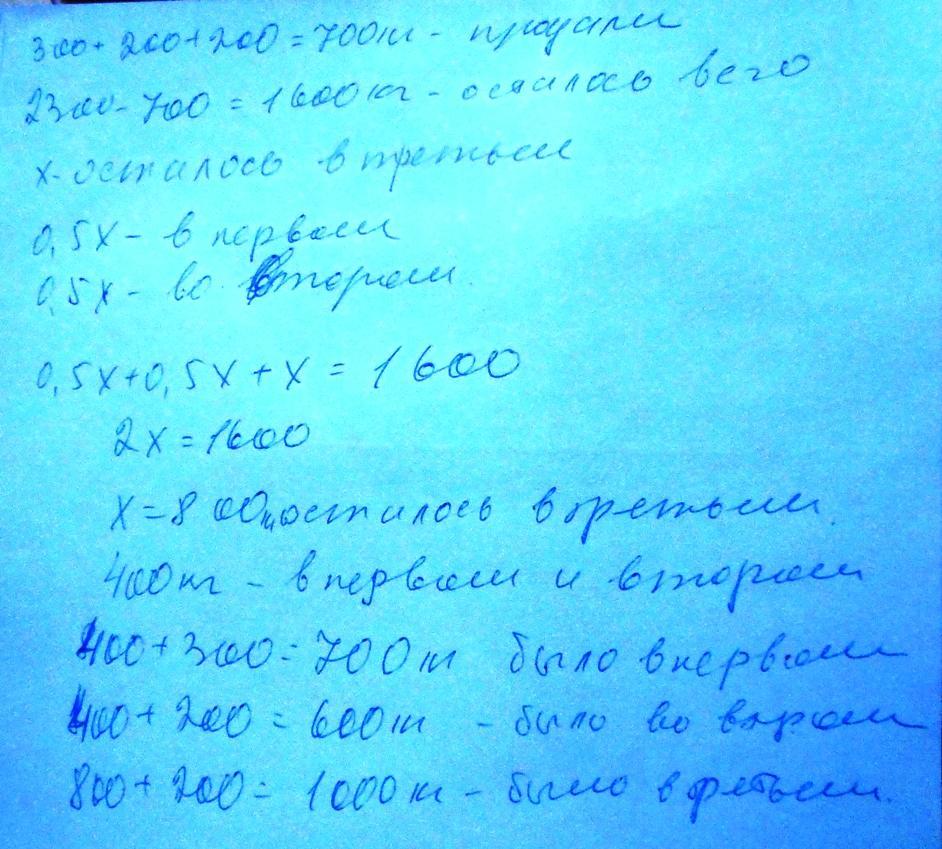 300+200+200=700кг - продали
2300-700=1600кг - осталось всего
х-осталось в третьем
0,5х- в первом
0,5х- во втором.
0,5х+0,5х+х=1600
2х=1600
х=800кг осталось в третьем.
400кг - в первом и втором
400+300=700кг было в первом
400+200=600кг - было во втором
800+200=1000кг - было в третьем.